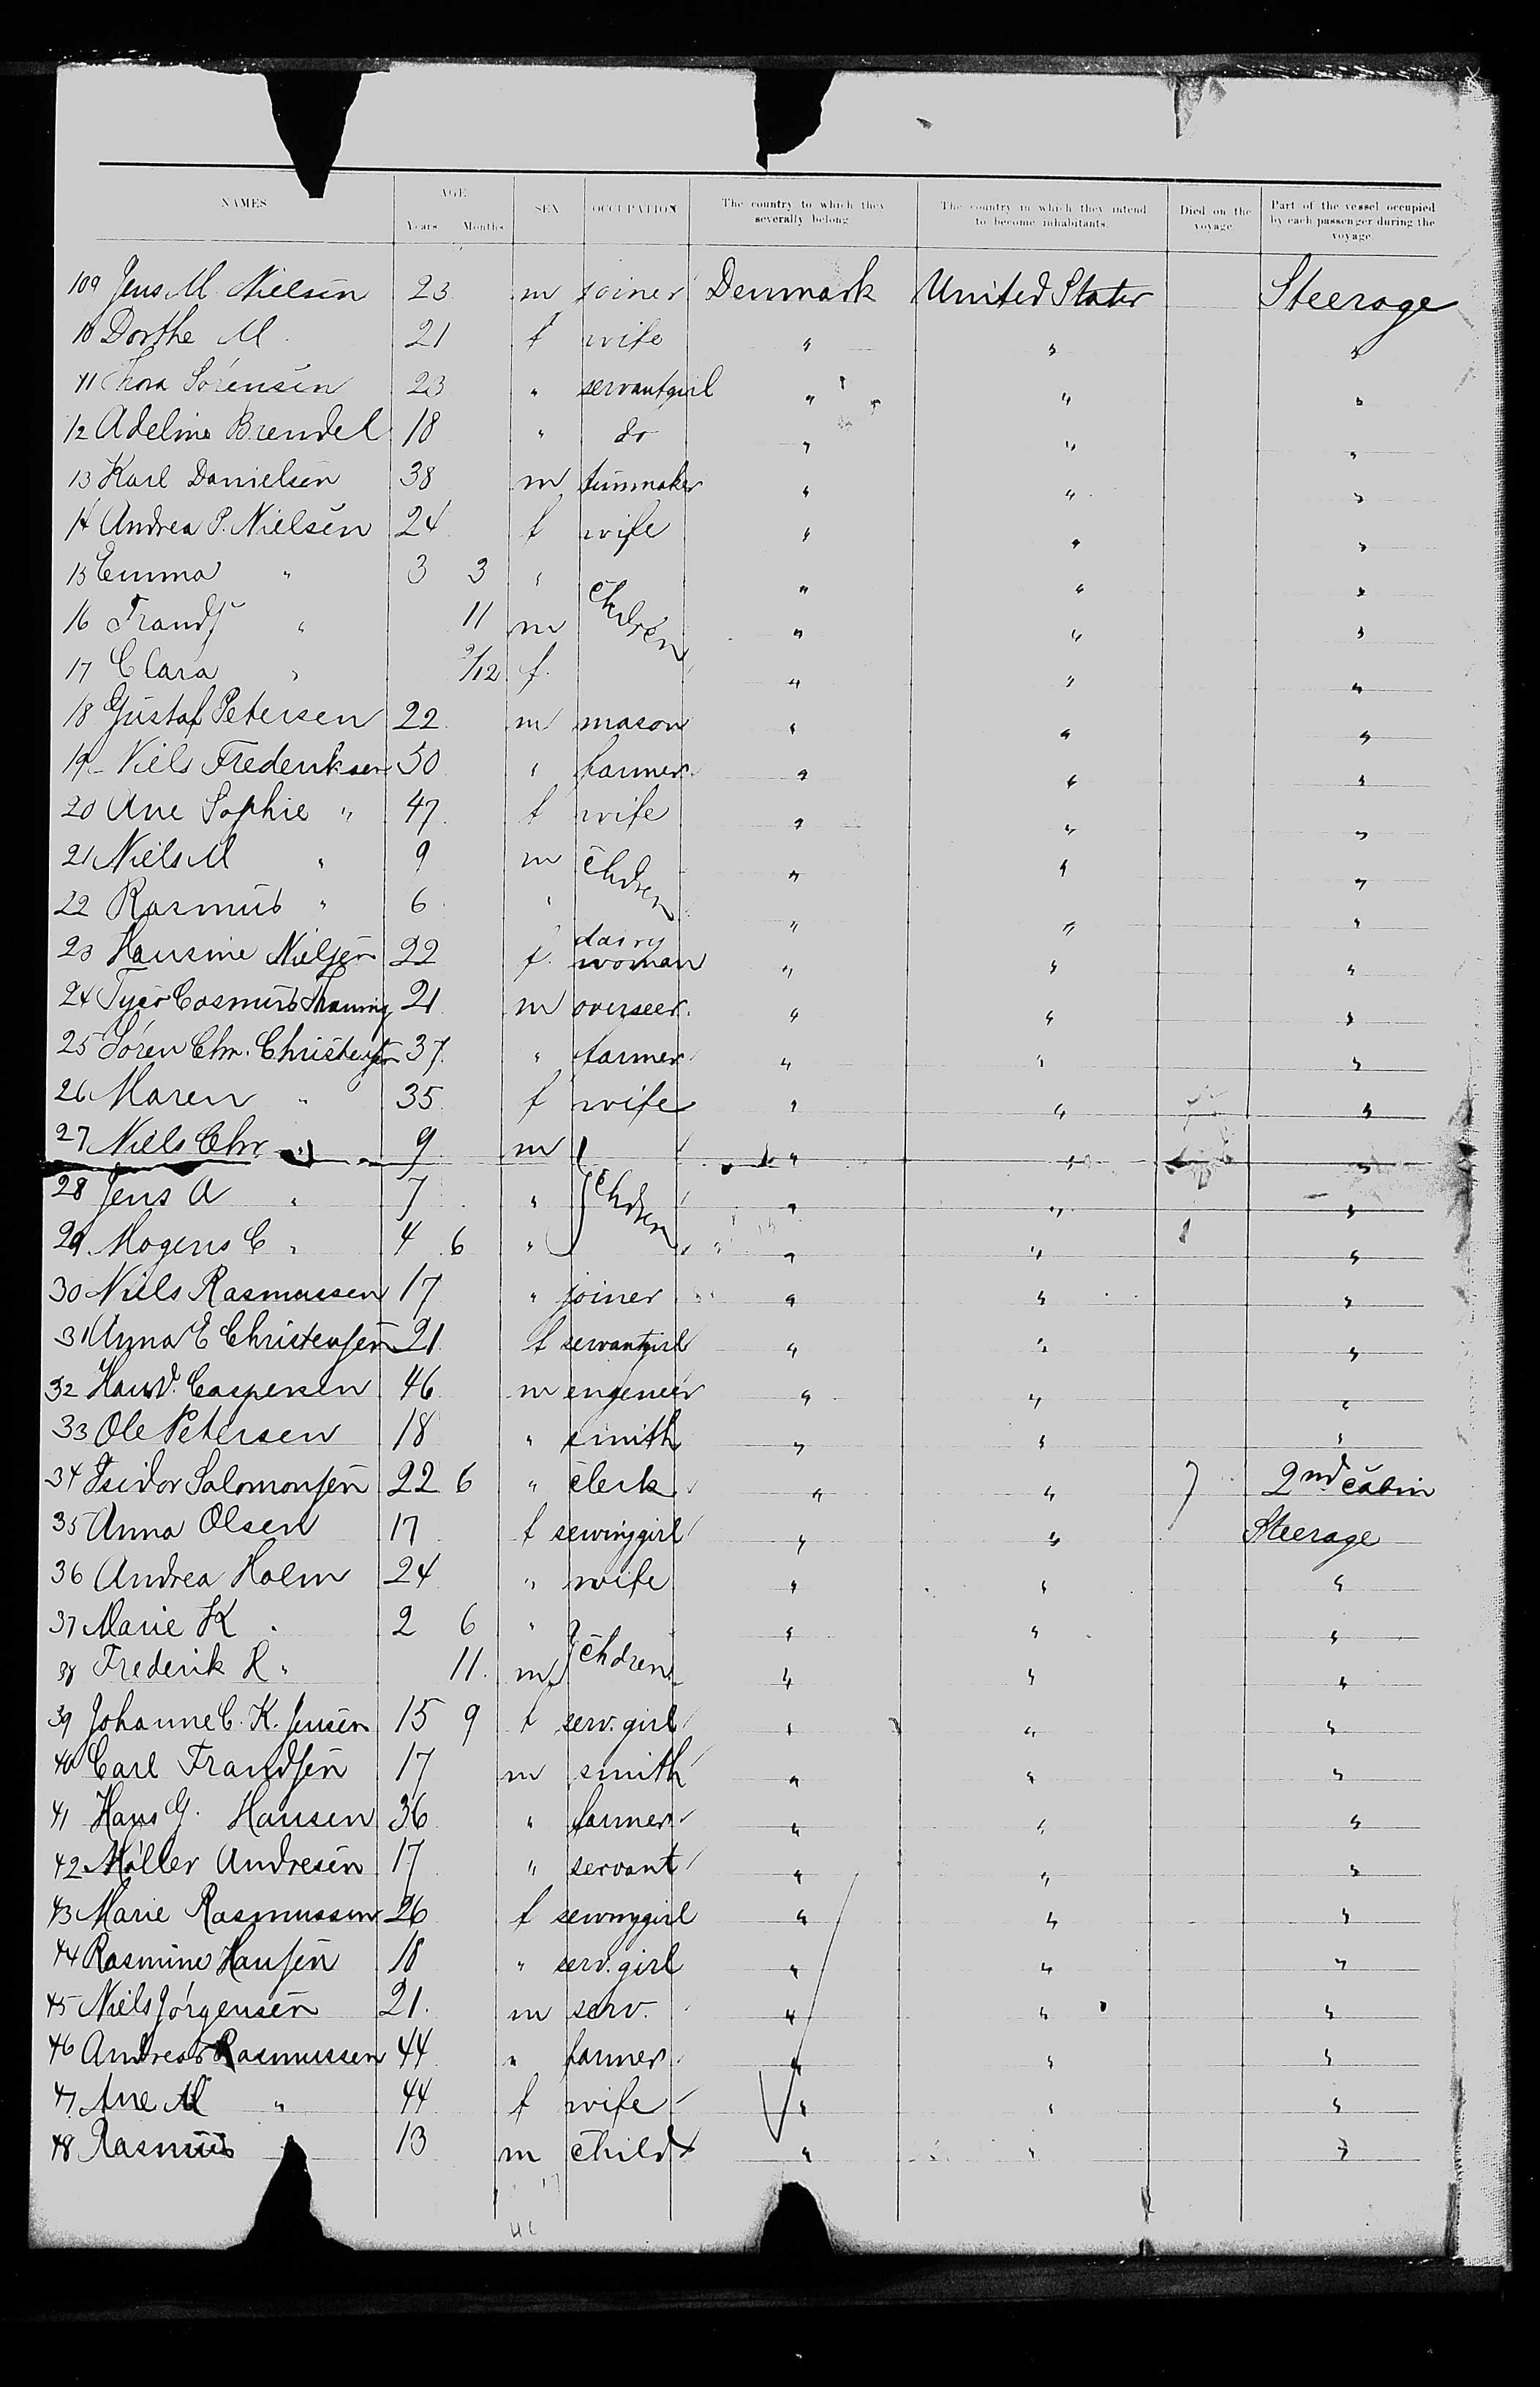 NAMES AGE Years Months SEX OCCUPATION The country to which they severally belong The country in which they intend to become inhabitants. Died on the voyage. Part of the vessel occupied by each passenger during the voyage.
109 Jens M. Nielsen 23 m joiner Denmark United States Steerage
10 Dorthe M. 21 f wife " " "
11 Thora Sörensen 23 " servantgirl " " "
12 Adeline Brendel 18 " do " " "
13 Karl Danielsen 38 m " " "
14 Andrea P. Nielsen 24 f wife " " "
15 Emma " 3 3 " Children " " "
16 Frandς " 11 m " " "
17 Clara " 9/12 f. " " "
18 Gustaf Petersen 22 m mason " " "
19 Niels Frederiksen 50 " farmer " " "
20 Ane Sophie " 47 f wife " " "
21 Niels M " 9 m Chdren " " "
22 Rasmus " 6 " " " "
23 Hansine Nielsen 22 f. dairy woman " " "
24 Cosmus 21 m overseer " " "
25 Sören Chr. Christensen 37 " farmer " " "
26 Maren " 35 f wife " " "
27 Niels Chr. " 9 m " " "
28 Jens A " 7 " Chdren " " "
29 Mogens C " 4 6 " " " "
30 Niels Rasmussen 17 " joiner " " "
31 Anna E Christensen 21 f servantgirl " " "
32 Caspersen 46 m engeneer " " "
33 Ole Petersen 18 " smith " " "
34 Isidor Salomonsen 22 6 " Clerk " " 2nd Cabin
35 Anna Olsen 17 f sewinggirl " " Steerage
36 Andrea Holm 24 " wife " " "
37 Marie K " 2 6 " Chdren " " "
38 Frederik R " 11. m " " "
39 Johanne C. K. Jensen 15 9 f serv. girl " " "
40 Carl Frandsen 17 m smith " " "
41 Hans G. Hansen 36 " farmer " " "
42 Möller Andresen 17 " servant " " "
43 Marie Rasmussen 26 f sewinggirl " " "
44 Rasmine Hansen 18 " serv. girl " " "
45 Niels Jörgensen 21. m serv. " " "
46 Andreas Rasmussen 44 " farmer " " "
47 Ane M " 44 f wife " " "
48 Rasmus 13 m Child " " "